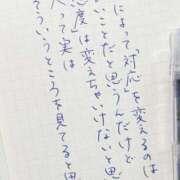 によって「対応」を変えるのは
いことだと思うんだけど
態度」は変えちゃいけないと思
人って実は
そういうところを見てると思